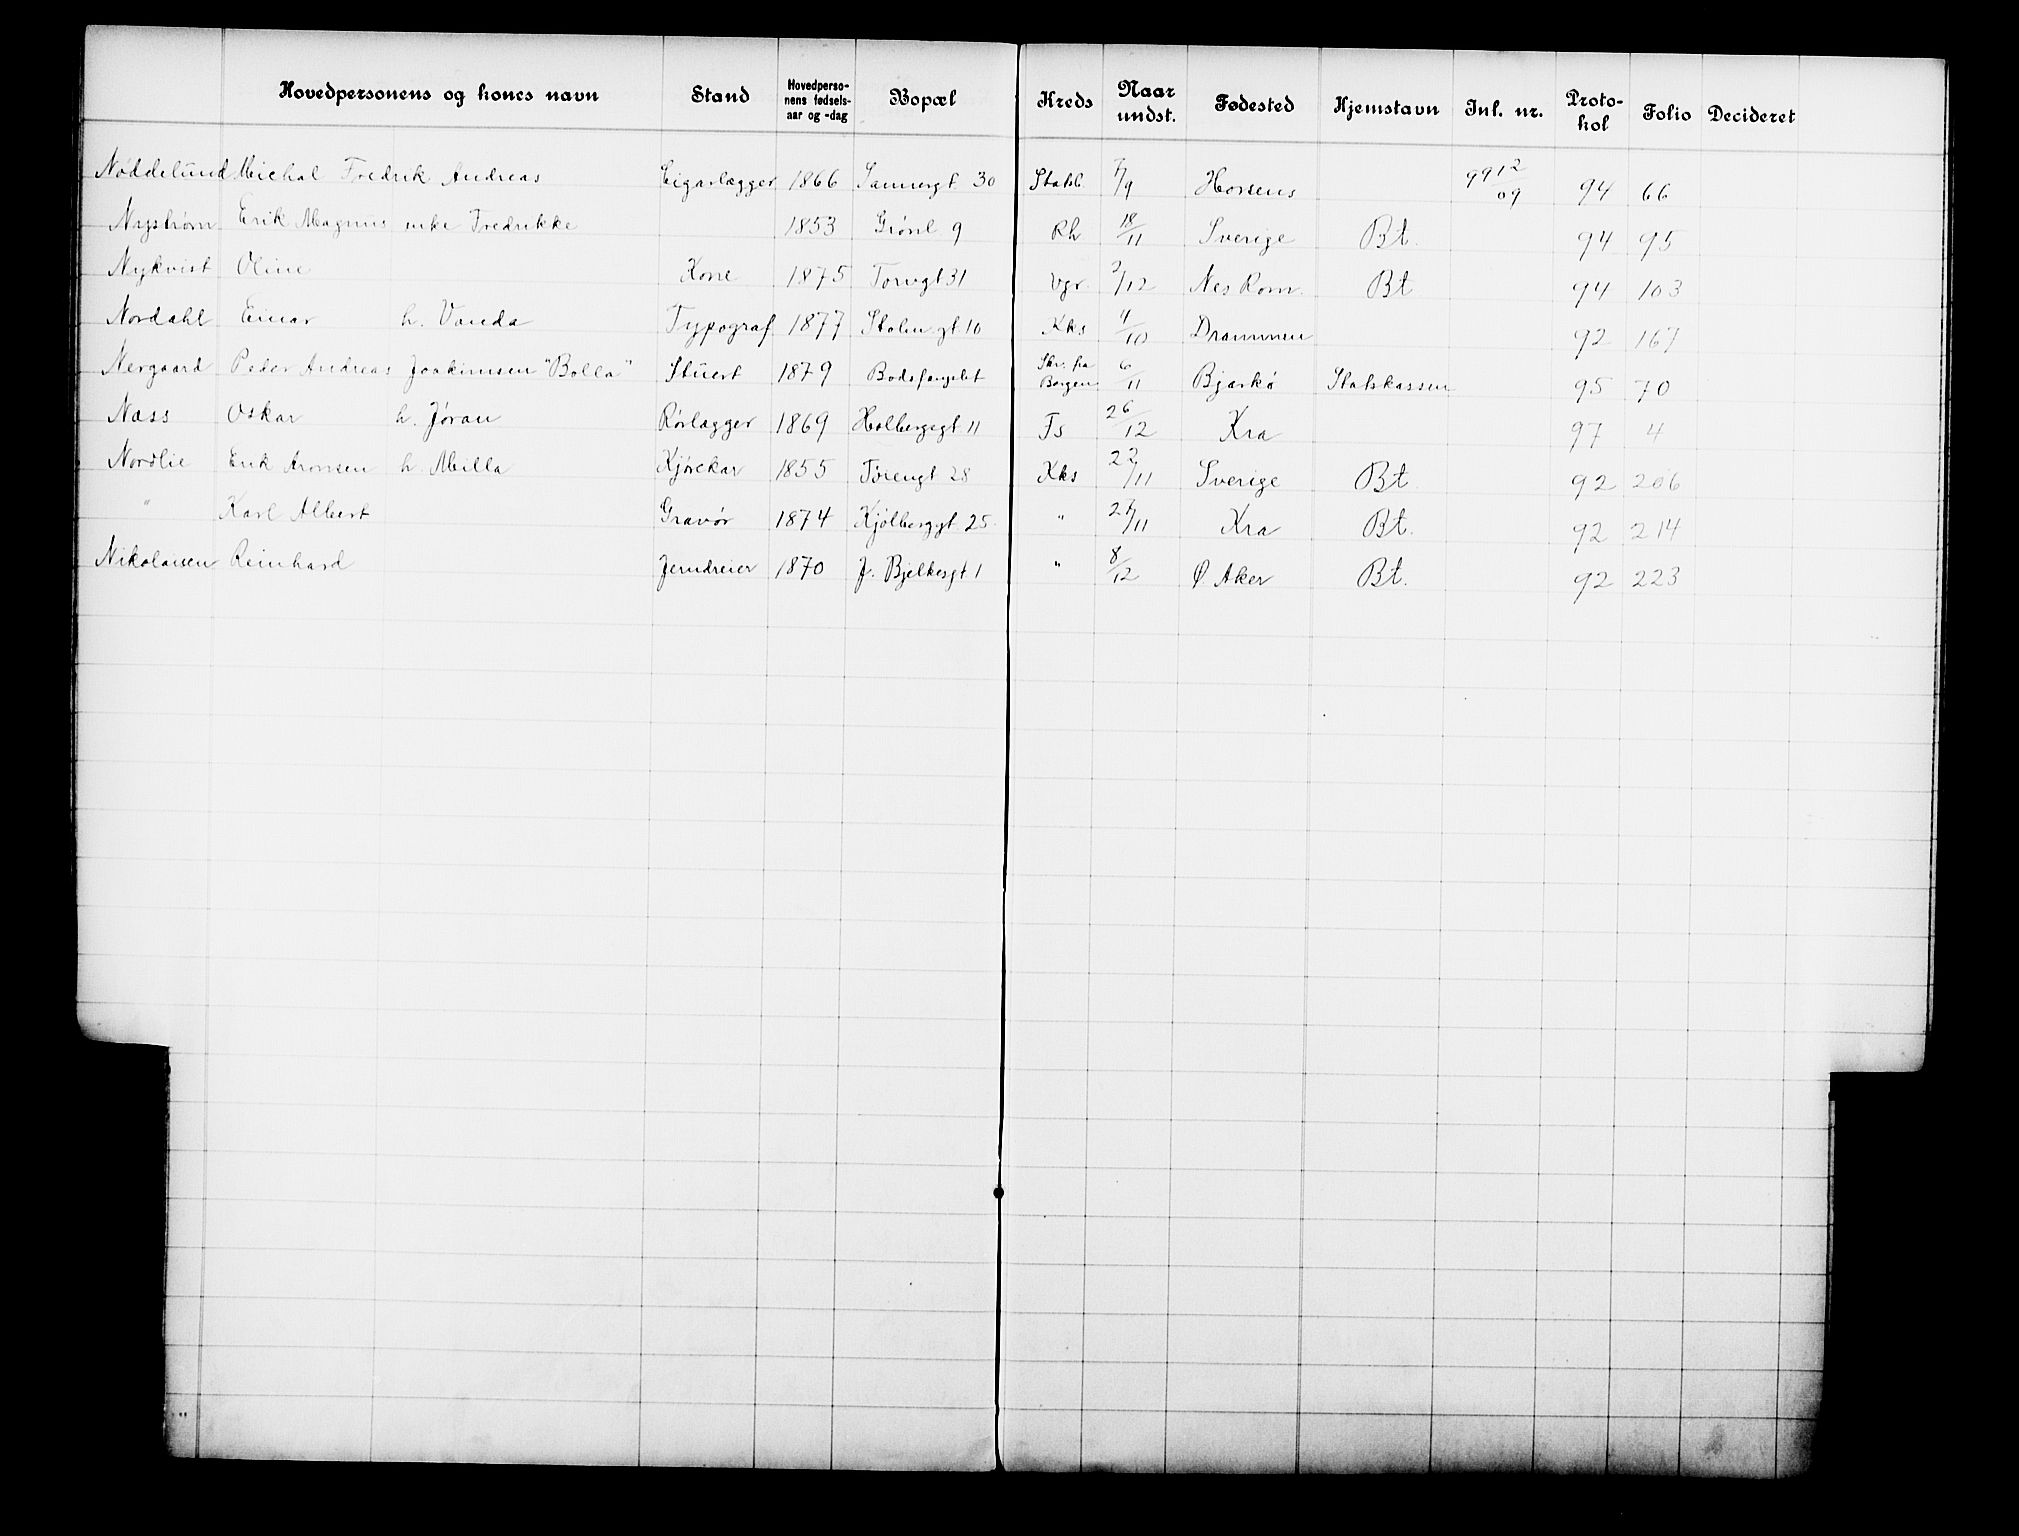 Hovedpersonens og kones navn Stand Hovedperso-nens fødsels-aar og -dag Bopæl Kreds Naar undst. Fødested Hjemstavn Inl. nr. Proto-kol Folio Decideret
Nøddelund Michal Fredrik Andreas Cigarlægger 1866 Sannergt. 30 Statsb. 7/9 Horsens 9912/09 94 66
Nystrøm Erik Magnus enke Fredrikke 1853 Grønl 9 Rh 18/11 Sverige Bt. 94 95
Nykvist Oline Kone 1875 Torvgt 31 Vgr. 2/12 Nes Rom. Bt 94 103
Nordahl Einar h. Vanda Typograf 1877 Stolm.gt 10 Kks 4/10 Drammen 92 167
Nergaard Peder Andreas Joakimsen "Bolla" Stuert 1879 Bodsfængslet Skr. fra Bergen 6/11 Bjarkø Statskassen 95 70
Næss Oskar h. Jøran Rørlægger 1869 Holbergsgt 11 Fs 26/12 Kra 97 4
Nordlie Erik Aronsen h. Milla Kjørekar 1855 Tøiengt 28 Kks 22/11 Sverige Bt 92 206
" Karl Albert Gravør 1874 Kjølberggt 25. " 27/11 Kra Bt. 92 214
Nikolaisen Reinhard Jerndreier 1870 J. Bjelkesgt 1 " 8/12 Ø Aker Bt. 92 223